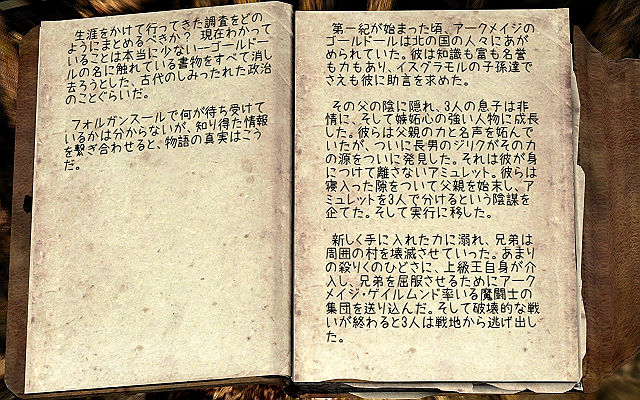 生涯をかけて行ってきた調査をどの
ようにまとめるべきか？ 現在わかって
いることは本当に少ない--ゴールドー
ルの名に触れている書物をすべて消し
去ろうとした、古代のしみったれた政治
のことぐらいだ。
フォルガンスールで何が待ち受けて
いるかは分からないが、知り得た情報
を繋ぎ合わせると、物語の真実はこう
だ。
第一紀が始まった頃、アークメイジの
ゴールドールは北の国の人々にあが
められていた。彼は知識も富も名誉
も力もあり、イスグラモルの子孫達で
さえも彼に助言を求めた。
その父の陰に隠れ、3人の息子は非
情に、そして嫉妬心の強い人物に成長
した。彼らは父親の力と名声を妬んで
いたが、ついに長男のジリクがその力
の源をついに発見した。それは彼が身
につけて離さないアミュレット。彼らは
寝入った隙をついて父親を始末し、ア
ミュレットを3人で分けるという陰謀を
企てた。そして実行に移した。
新しく手に入れた力に溺れ、兄弟は
周囲の村を壊滅させていった。あまり
の殺りくのひどさに、上級王自身が介
入し、兄弟を屈服させるためにアーク
メイジ・ゲイルムンド率いる魔闘士の
集団を送り込んだ。そして破壊的な戦
いが終わると3人は戦地から逃げ出し
た。